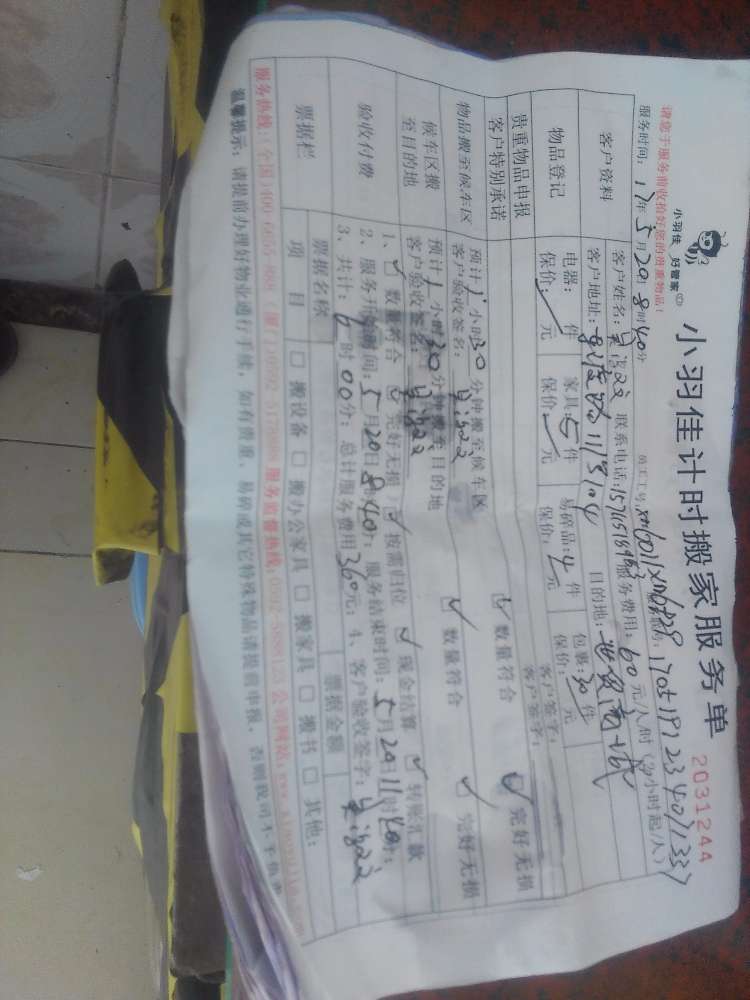 小羽佳 好管家
小羽佳计时搬家服务单
2031244
请您于服务前收拾好您的贵重物品!
员工工号: xm6011xm6828 1705191234011337
服务时间: 17年5月20日8时40分
客户资料
客户姓名: 联系电话: 服务费用: 60元/人/时
客户地址: 目的地: 世贸商城
物品登记
电器: 件 家具: 5件 易碎品: 4件 包裹: 30件
保价: 元 保价: 元 保价: 元 保价: 元
贵重物品申报
客户特别承诺
客户签字:
客户签字:
物品搬至候车区
预计1小时30分钟搬至候车区
客户验收签名:
数量符合 完好无损
候车区搬至目的地
预计1小时30分钟搬至目的地
客户验收签名:
数量符合 完好无损
验收付费
1、数量符合 完好无损 按需归位 现金结算 转账汇款
2、服务开始时间: 5月20日8时40分; 服务结束时间: 5月20日11时40分;
3、共计: 6时00分; 总计服务费用360元; 4、客户验收签字:
票据栏
票据名称 票据金额
项目 □ 搬设备 □ 搬办公家具 □ 搬家具 □ 搬书 □ 其他:
服务热线: (全国)400-6655-888 服务监督热线: 公司网站:
温馨提示: 请提前办理好物业通行手续, 如有贵重、易碎或其它特殊物品请提前申报, 否则我司不予负责